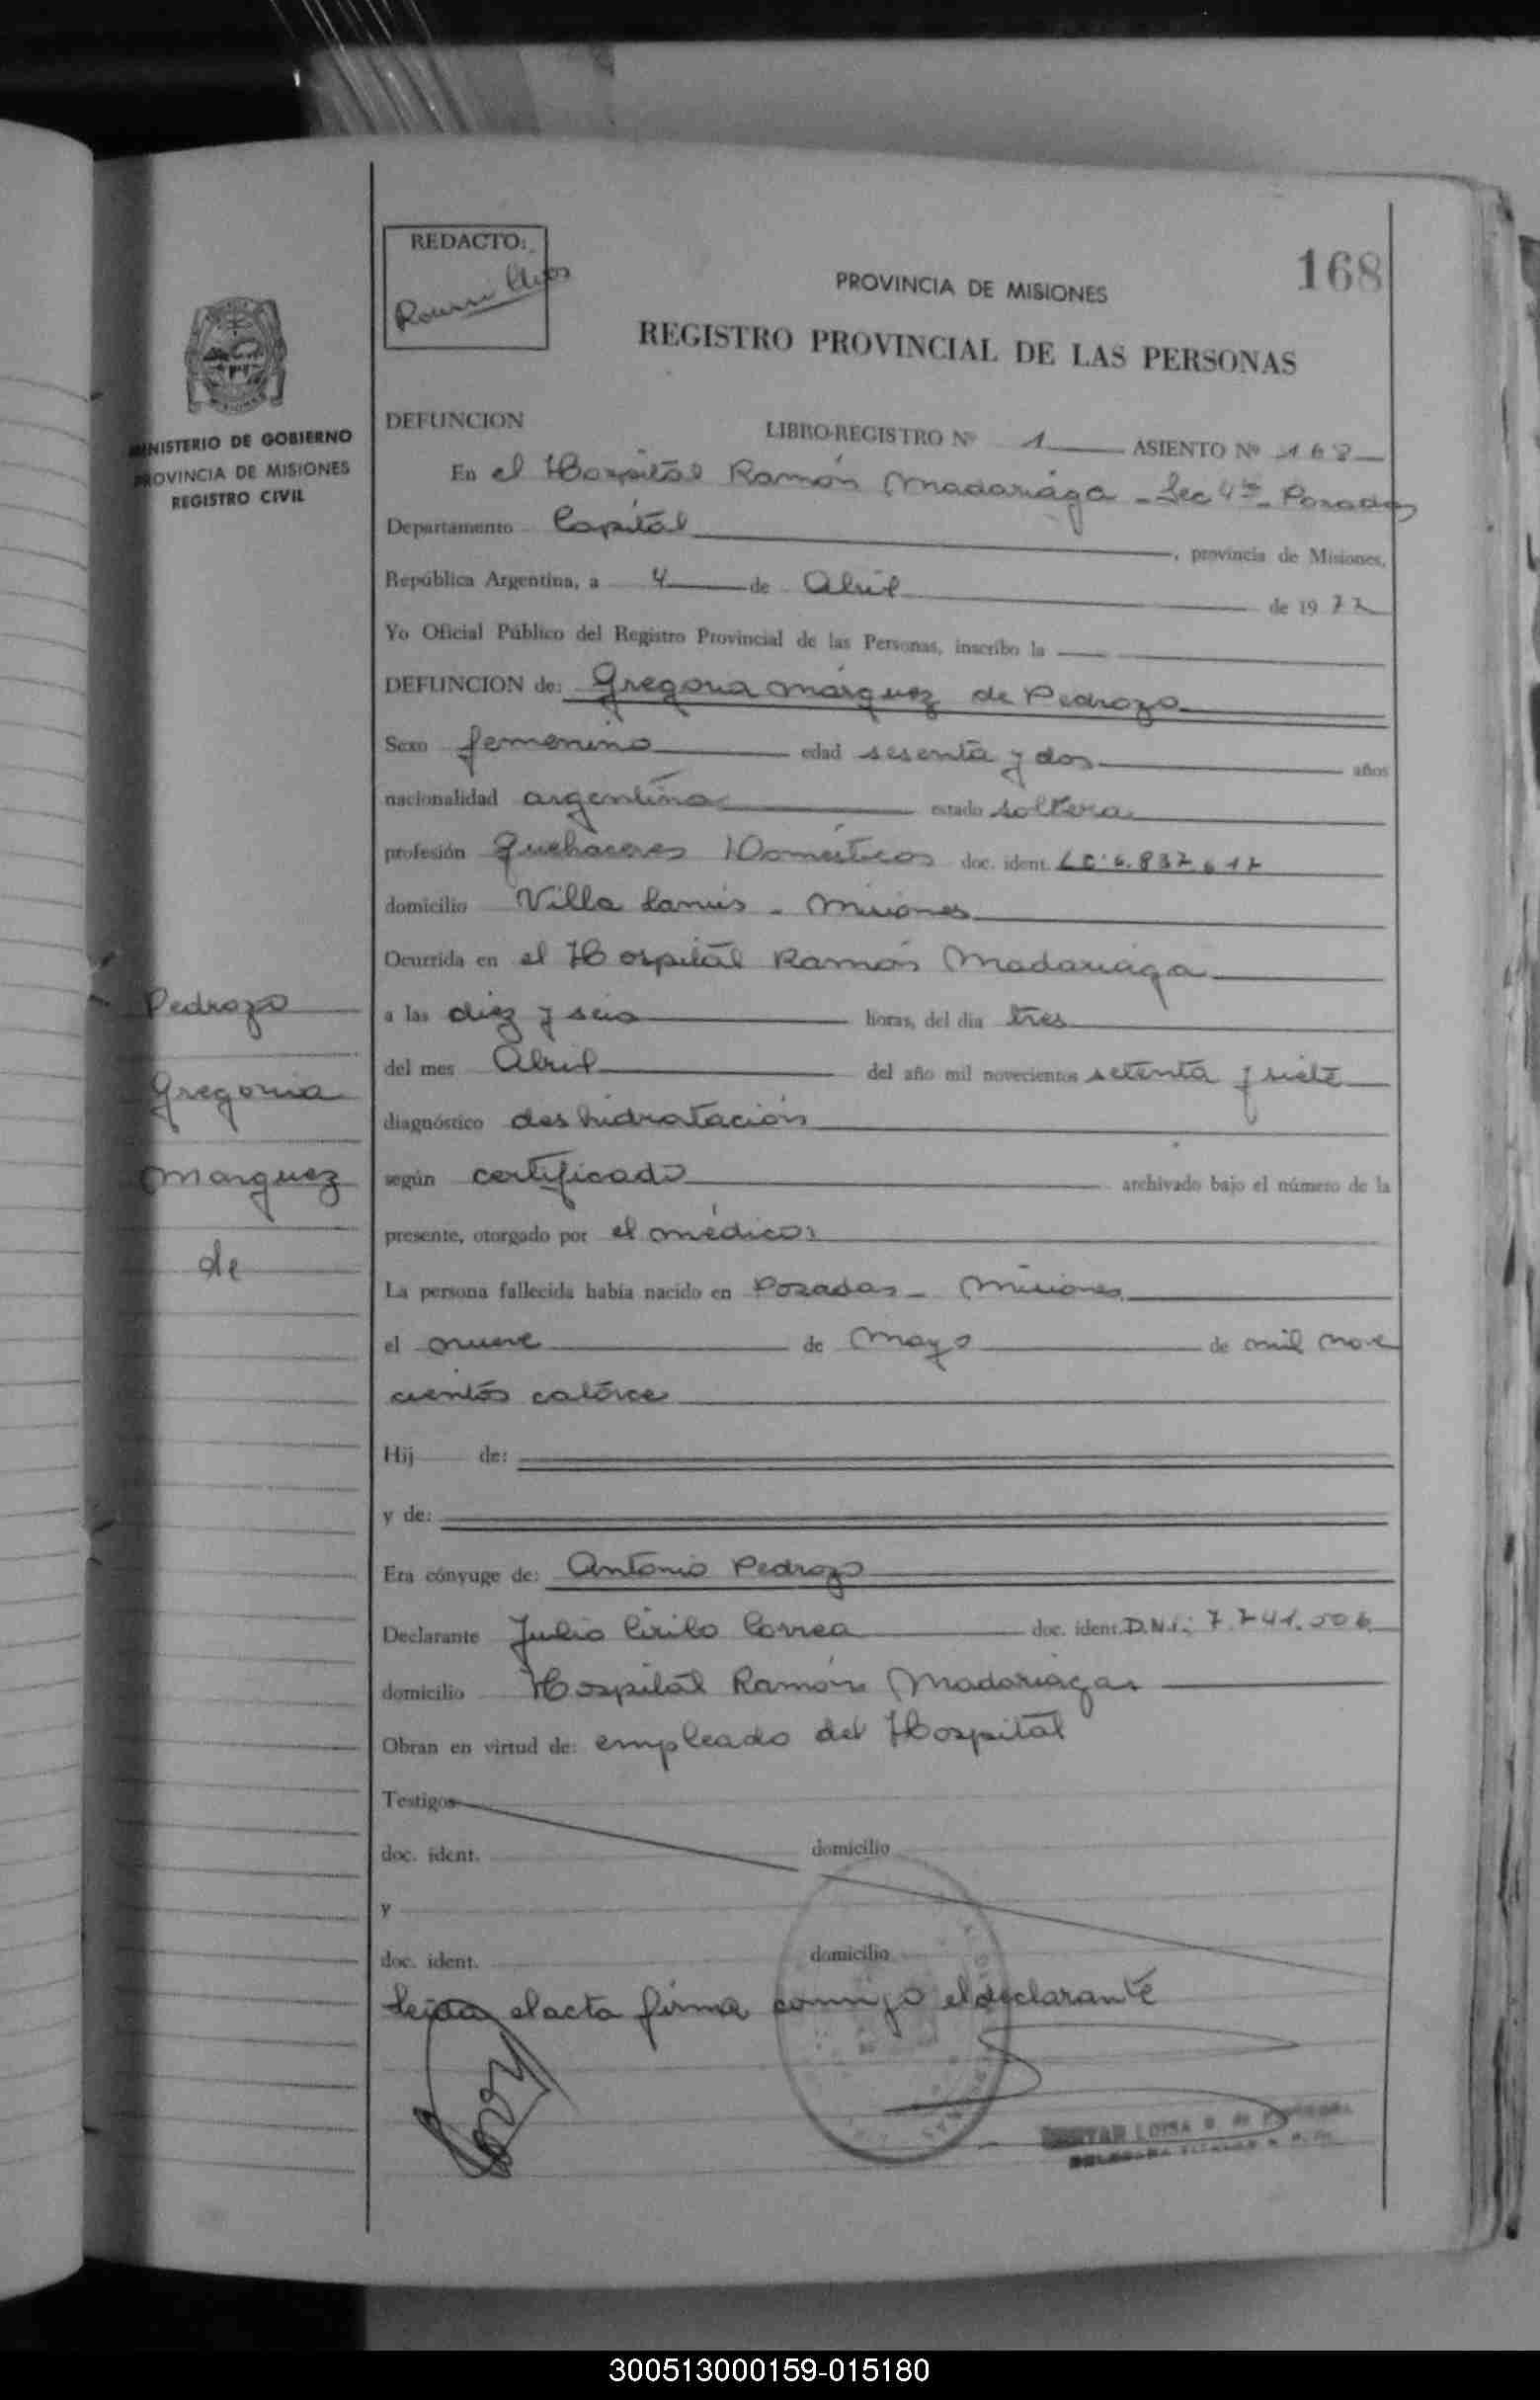 168
REDACTO:
PROVINCIA DE MISIONES
REGISTRO PROVINCIAL DE LAS PERSONAS
MINISTERIO DE GOBIERNO
PROVINCIA DE MISIONES
REGISTRO CIVIL
DEFUNCION LIBRO-REGISTRO Nº 1 ASIENTO Nº 168
En el Hospital Ramón Madariaga - Sec 4ta - Posadas
Departamento Capital, provincia de Misiones,
República Argentina, a 4 de Abril de 1977
Yo Oficial Público del Registro Provincial de las Personas, inscribo la
DEFUNCION de: Gregoria Márquez de Pedrozo
Sexo femenino edad sesenta y dos años
nacionalidad argentina estado soltera
profesión Quehaceres Domésticos doc. ident. LC: 6.837.617
domicilio Villa Lanús - Misiones
Ocurrida en el Hospital Ramón Madariaga
a las diez y seis horas, del día tres
del mes Abril del año mil novecientos setenta y siete
diagnóstico deshidratación
según certificado archivado bajo el número de la
presente, otorgado por el médico:
La persona fallecida había nacido en Posadas - Misiones
el nueve de Mayo de mil nove
cientos catorce
Hij de:
y de:
Era cónyuge de: Antonio Pedrozo
Declarante Julio Cirilo Correa doc. ident. D.N.I.: 7.741.506
domicilio Hospital Ramón Madariaga
Obran en virtud de: empleado del Hospital
Testigos
doc. ident. domicilio
y
doc. ident. domicilio
Leida el acta firma conmigo el declarante
Pedrozo
Gregoria
Marquez
de
300513000159-015180